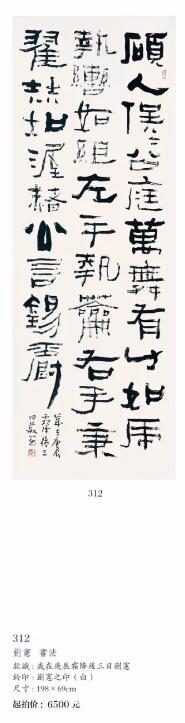 碩人俁〻公庭萬舞有力如虎
執轡如組左手執籥右手秉
翟赫如渥赭公言錫爵
歲在庚辰
霜降後三
日蒯憲
312
312
蒯憲 書法
款識:歲在庚辰霜降後三日蒯憲
鈐印:蒯憲之印(白)
尺寸:198×69cm
起拍价:6500 元